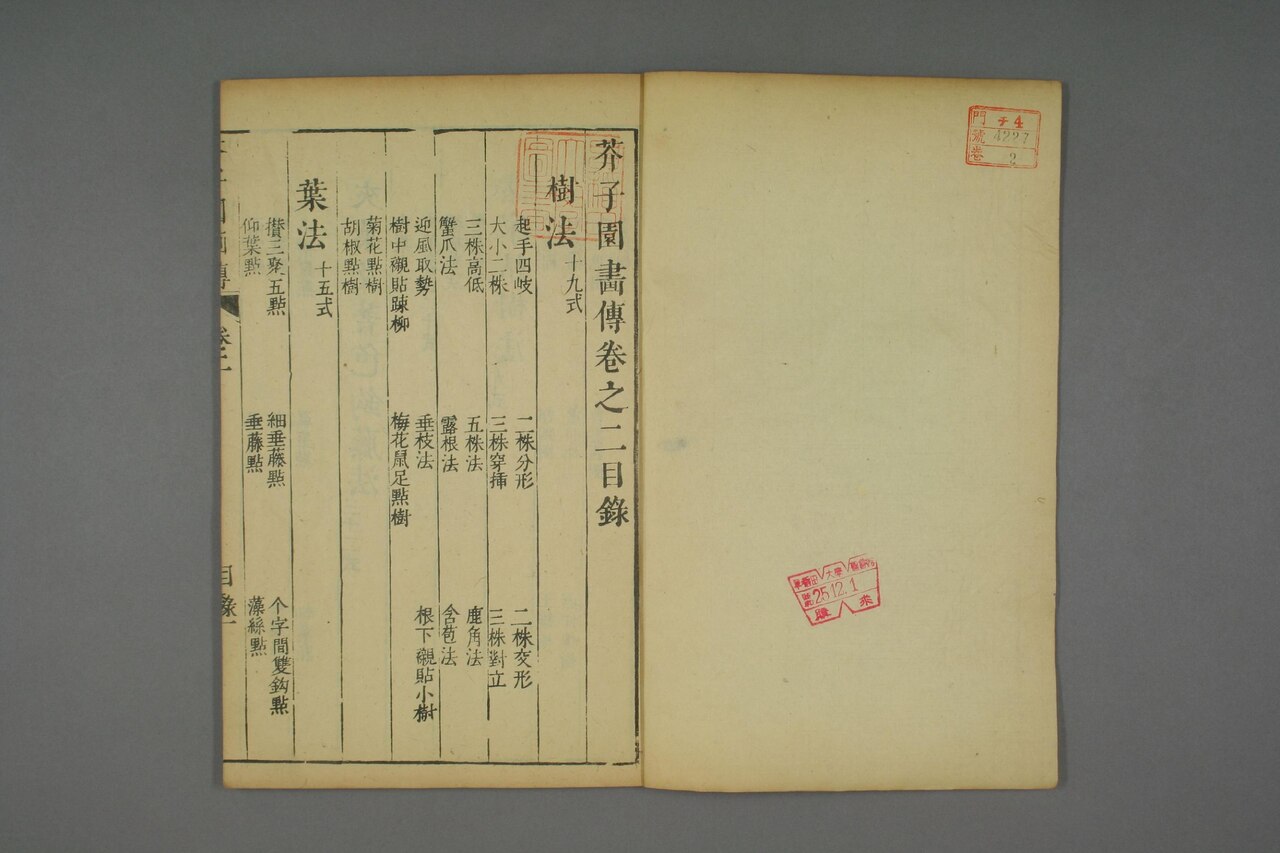 門 チ4
號 4227
卷 2
大學
25.12.1
購求
芥子園畫傳卷之二目錄
樹法 十九式
起手四岐 二株分形 二株交形
大小二株 三株穿揷 三株對立
三株高低 五株法 鹿角法
蟹爪法 露根法 含苞法
迎風取勢 垂枝法 根下襯貼小樹
樹中襯貼踈柳 梅花鼠足點樹
菊花點樹
胡椒點樹
葉法 十五式
攢三聚五點 細垂藤點 个字間雙鈎點
仰葉點 垂藤點 藻絲點
目錄一